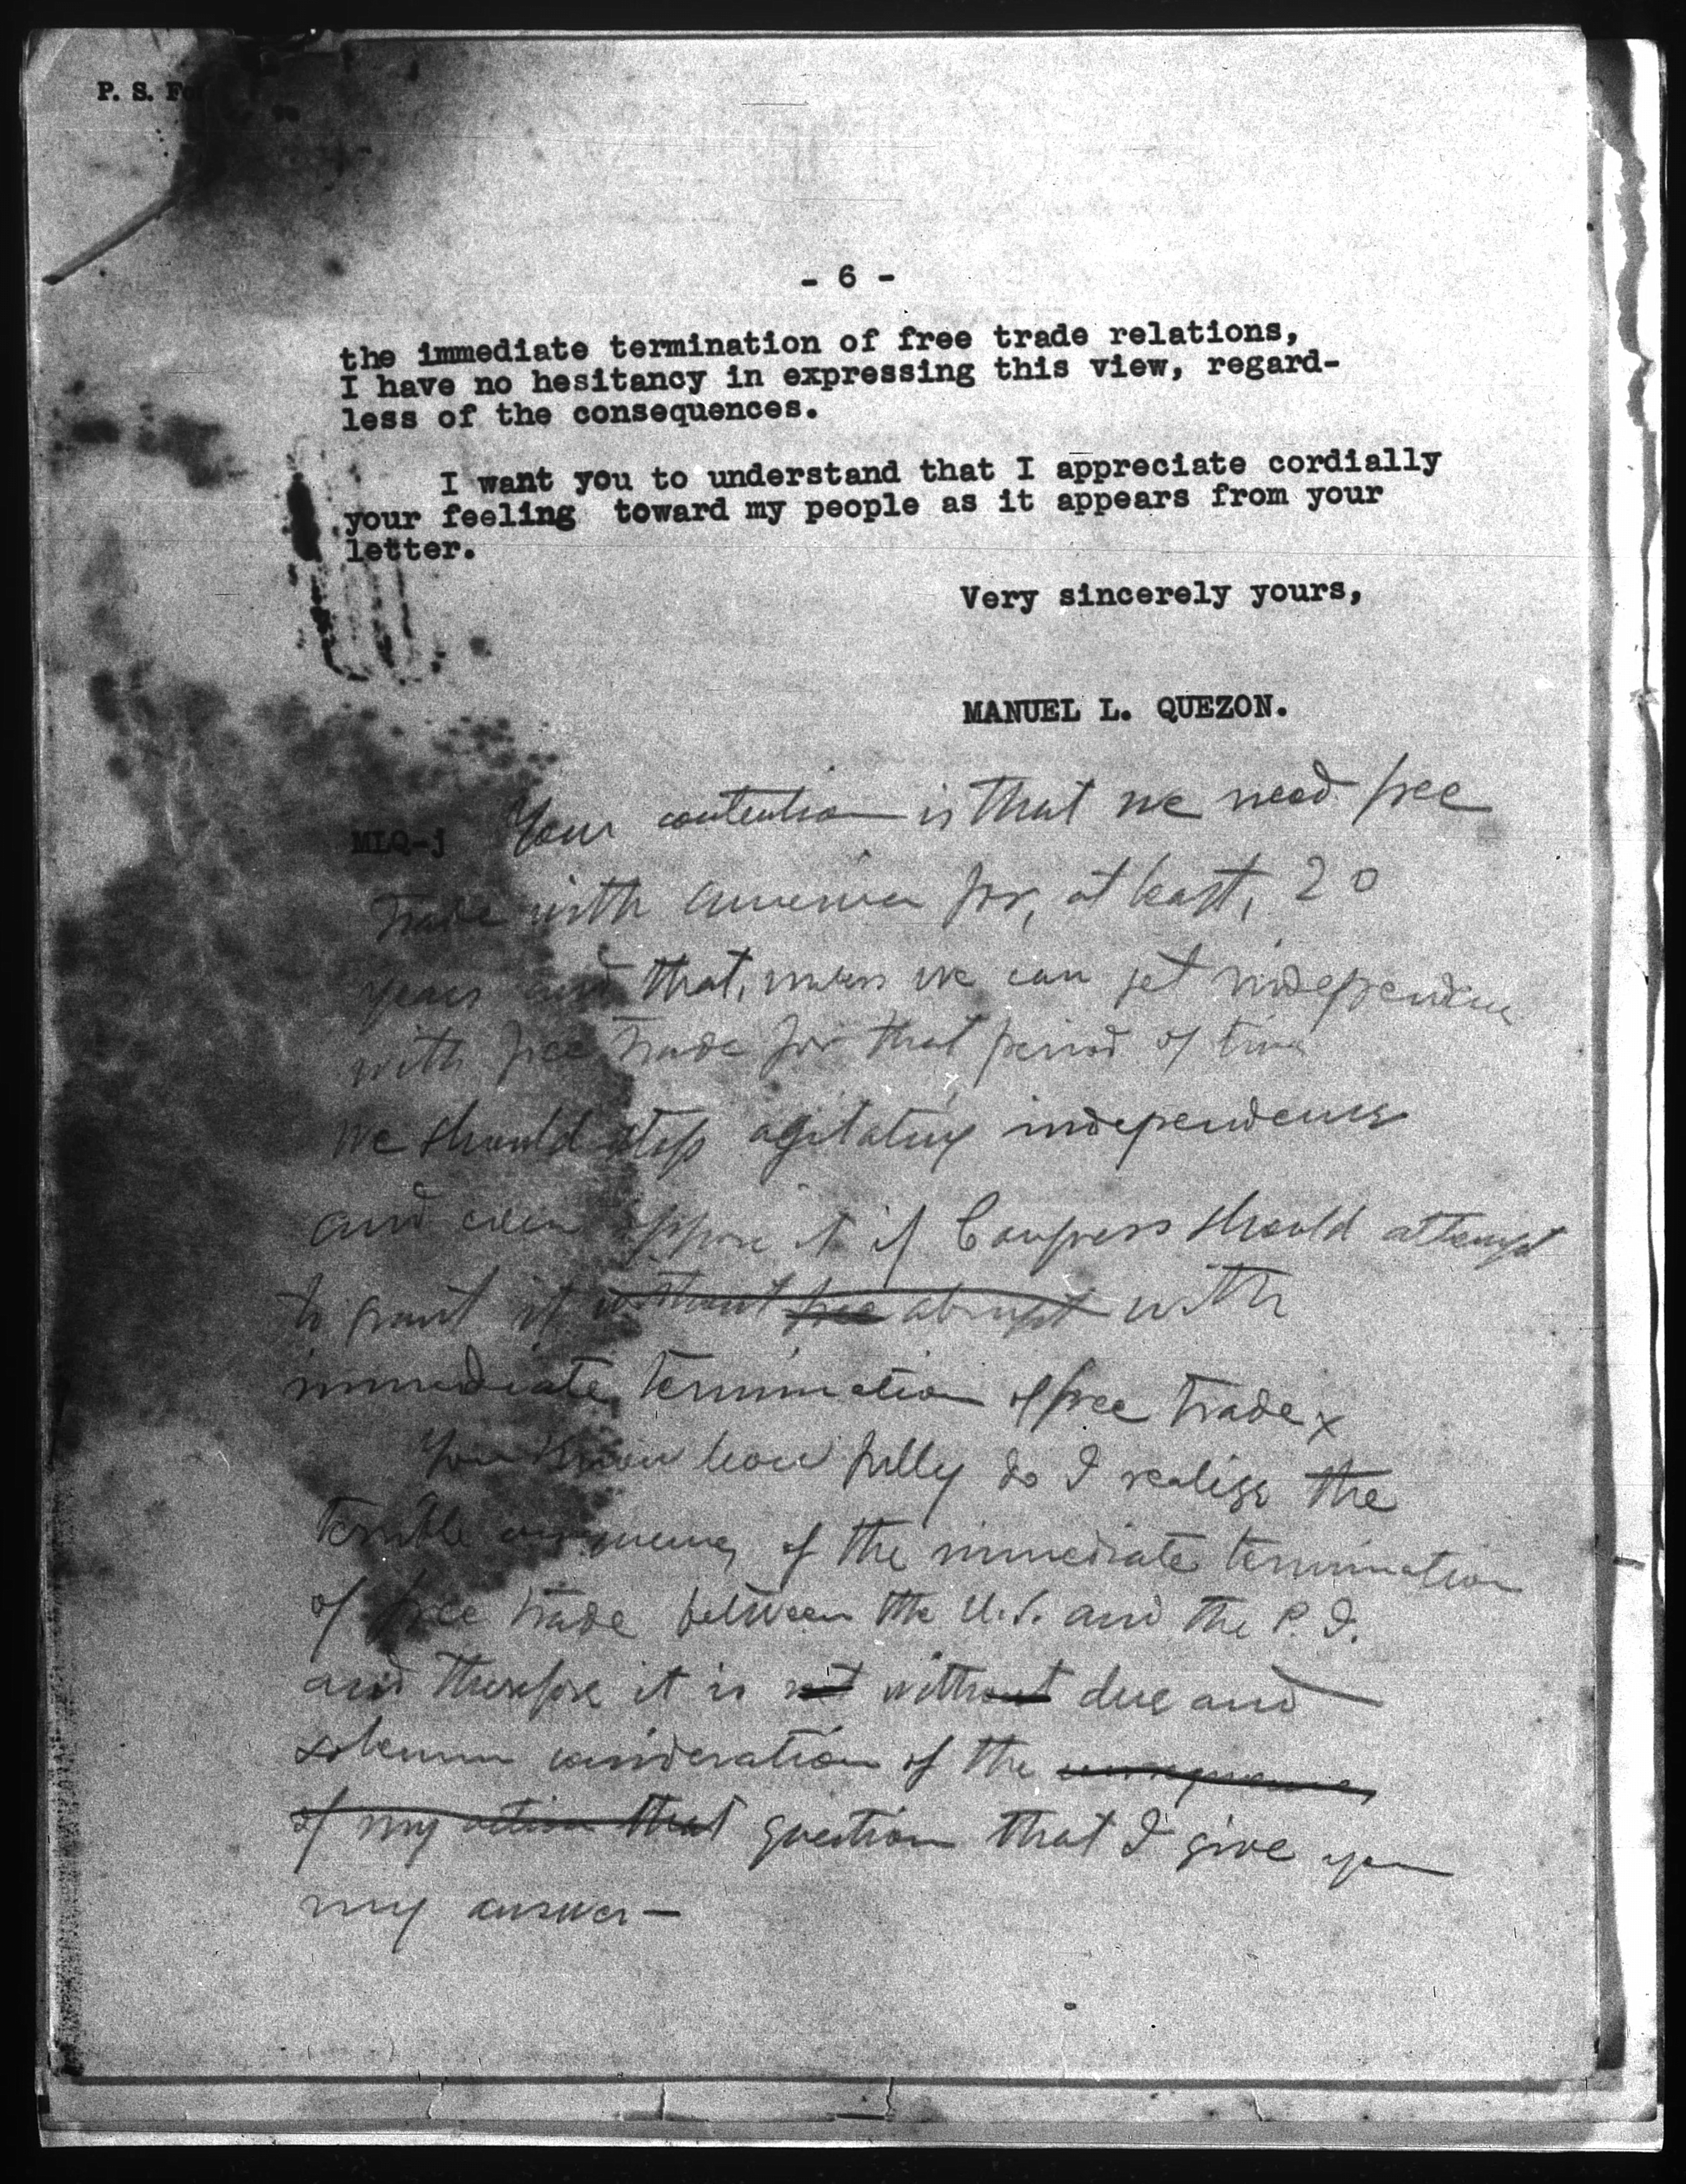 P. S. Fo
- 6 -
the immediate termination of free trade relations,
I have no hesitancy in expressing this view, regard-
less of the consequences.
I want you to understand that I appreciate cordially
your feeling toward my people as it appears from your
letter.
Very sincerely yours,
MANUEL L. QUEZON.
MLQ-j
Your contention is that we need free
trade with America for, at least, 20
years and that, unless we can get independence
with free trade for that period of time
we should stop agitating independence
and even oppose it if Congress should attempt
to grant it without free abrupt with
immediate termination of free trade x
You know how fully do I realize the
terrible consequences of the immediate termination
of free trade between the U.S. and the P. I.
and therefore it is not without due and
solemn consideration of the consequences
of my action that question that I give you
my answer —